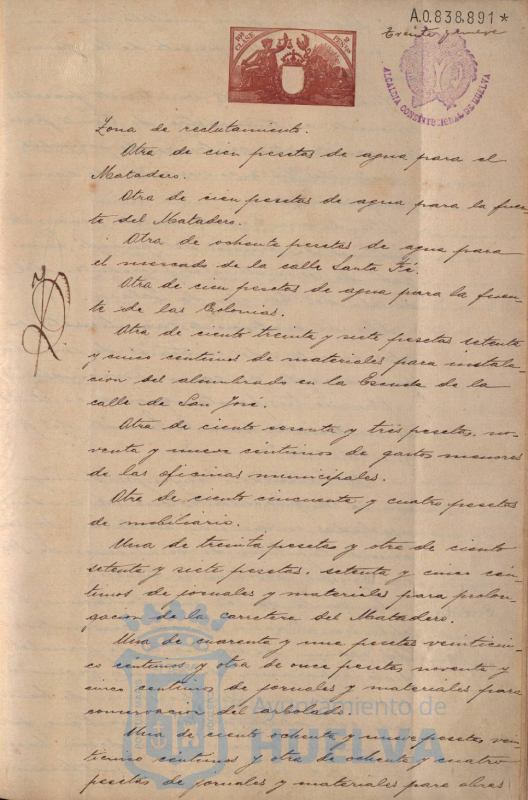 A.0.838,891*
Treinta y nueve
10ª CLASE 2 PESETAS
ALCALDIA CONSTITUCIONAL DE HUELVA
Zona de reclutamiento.
Otra de cien pesetas de agua para el
Matadero.
Otra de cien pesetas de agua para la fuen-
te del Matadero.
Otra de ochenta pesetas de agua para
el mercado de la calle Santa Fé.
Otra de cien pesetas de agua para la fuen-
te de las Colonias.
Otra de ciento treinta y siete pesetas setenta
y cinco céntimos de materiales para instala-
cion del alumbrado en la Escuela de la
calle de San José.
Otra de ciento sesenta y tres pesetas, no-
venta y nueve centimos de gastos menores
de las oficinas municipales.
Otra de ciento cincuenta y cuatro pesetas
de mobiliario.
Una de treinta pesetas y otra de ciento
setenta y siete pesetas, setenta y cinco cén-
timos de jornales y materiales para prolon-
gacion de la carretera del Matadero.
Una de cuarenta y una pesetas veinticin-
co centimos y otra de once pesetas noventa y
cinco centimos de jornales y materiales para
conservacion del arbolado.
Una de ciento ochenta y nueve pesetas vein-
ticinco centimos y otra de ochenta y cuatro
pesetas de jornales y materiales para obras
Ayuntamiento de
HUELVA